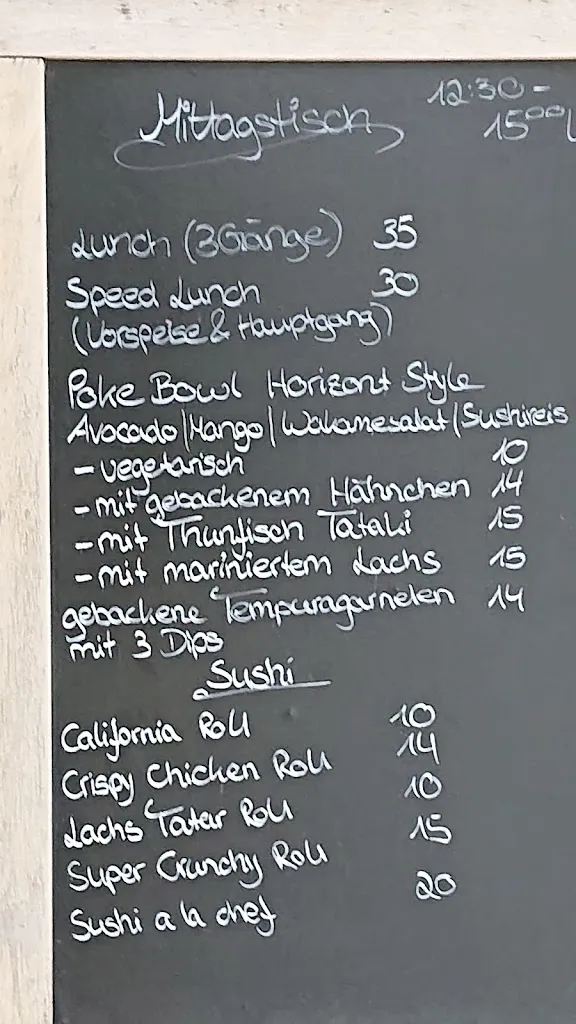 Mittagstisch 12:30 -
15⁰⁰
Lunch (3 Gänge) 35
Speed Lunch 30
(Vorspeise & Hauptgang)
Poke Bowl Horizont Style
Avocado | Mango | Wakamesalat | Sushireis
- vegetarisch 10
- mit gebackenem Hähnchen 14
- mit Thunfisch Tataki 15
- mit mariniertem Lachs 15
gebackene Tempuragarnelen 14
mit 3 Dips
Sushi
California Roll 10
Crispy Chicken Roll 14
Lachs Tatar Roll 10
Super Crunchy Roll 15
Sushi a la chef 20